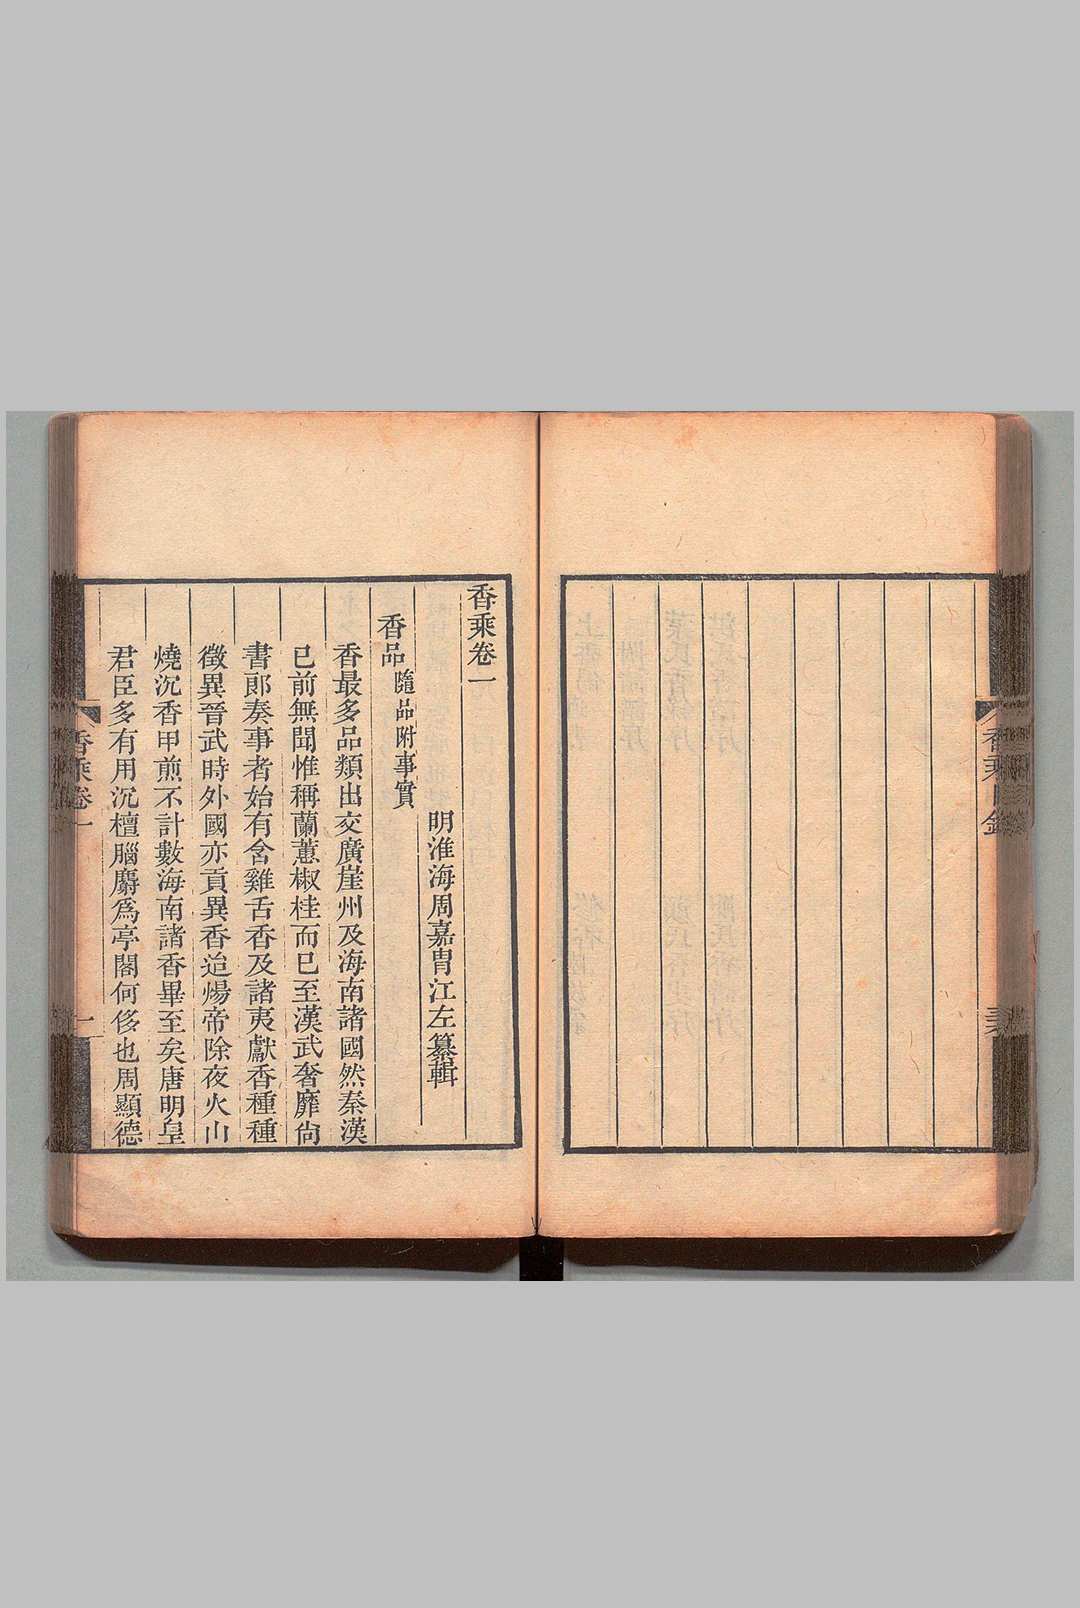 香乘卷一
明淮海周嘉胄江左纂輯
香品隨品附事實
香最多品類出交廣崖州及海南諸國然秦漢
已前無聞惟稱蘭蕙椒桂而已至漢武奢靡尙
書郞奏事者始有含雞舌香及諸夷獻香種種
徵異晉武時外國亦貢異香迨煬帝除夜火山
燒沉香甲煎不計數海南諸香畢至矣唐明皇
君臣多有用沉檀腦麝爲亭閣何侈也周顯德
香乘卷一
一